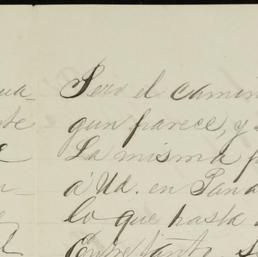 ua- Pero el camin
te gun parece, y
e La misma
n- á Ud. en Pana
lo que hasta
l Entre tanto s